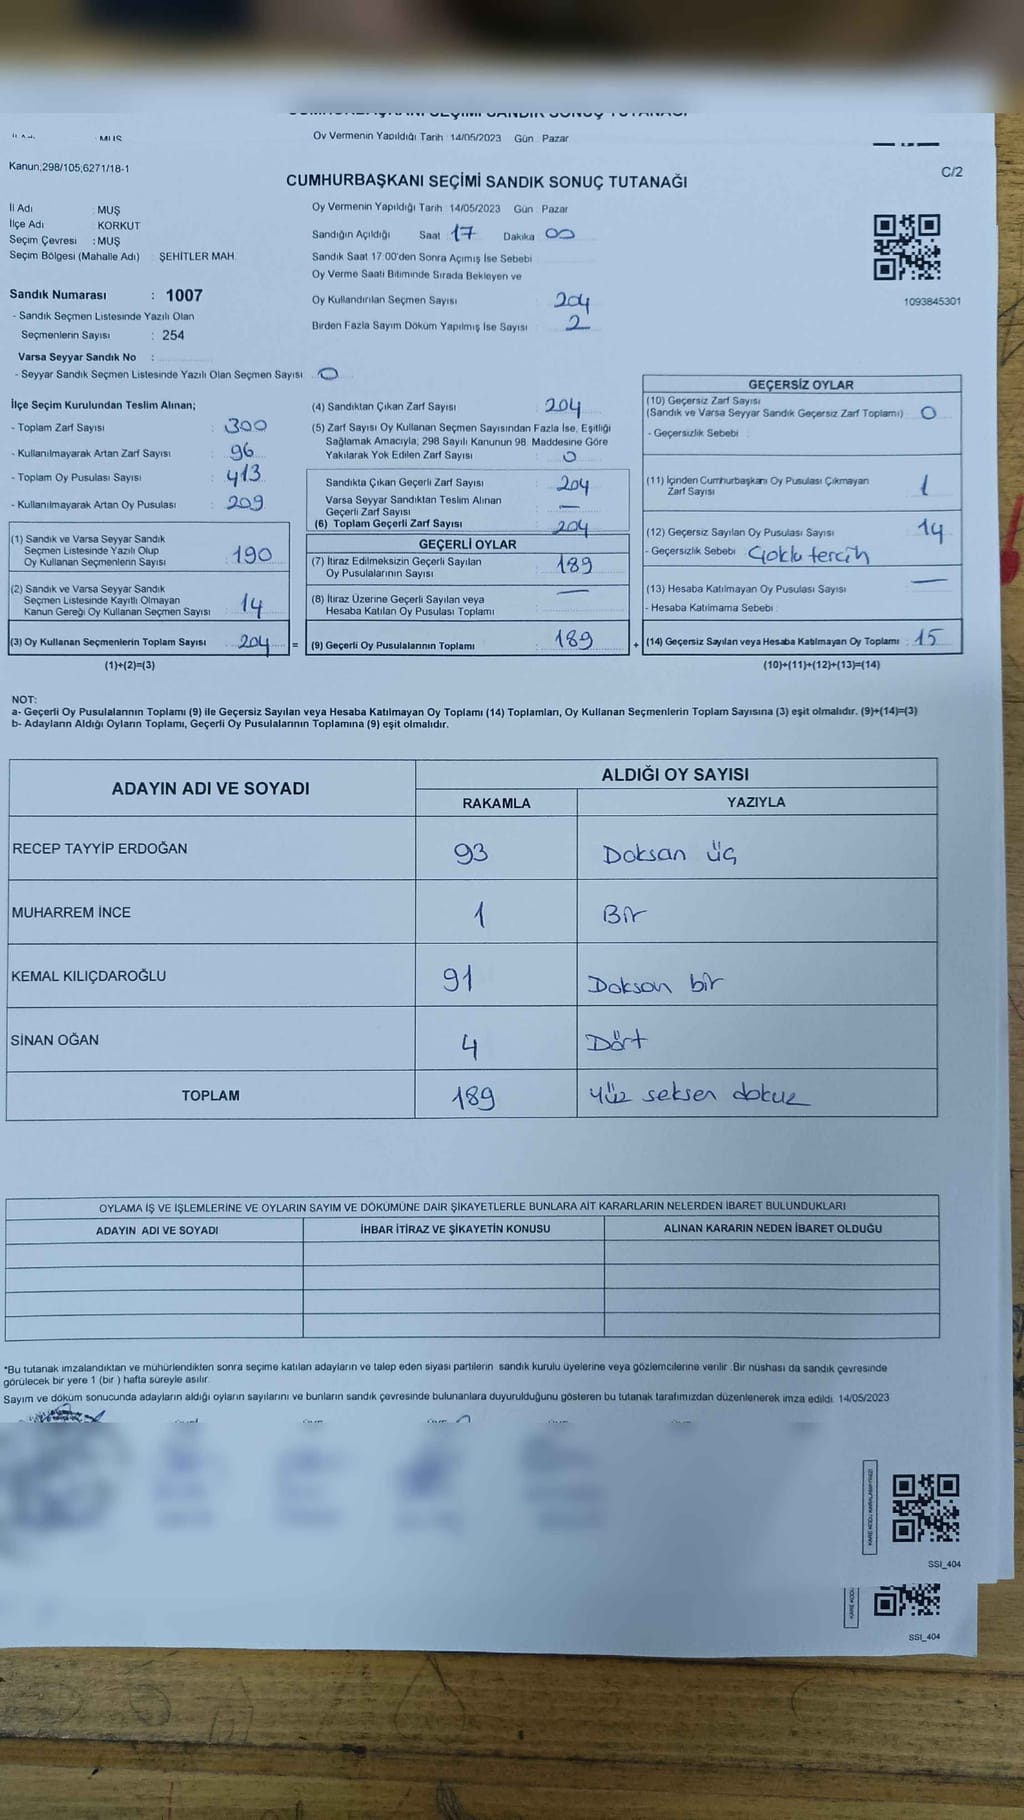 MUŞ
Oy Vermenin Yapıldığı Tarih : 14/05/2023 Gün : Pazar
Kanun;298/105;6271/18-1
C/2
CUMHURBAŞKANI SEÇİMİ SANDIK SONUÇ TUTANAĞI
İl Adı : MUŞ
İlçe Adı : KORKUT
Seçim Çevresi : MUŞ
Seçim Bölgesi (Mahalle Adı) ŞEHİTLER MAH.
Sandık Numarası : 1007
- Sandık Seçmen Listesinde Yazılı Olan
Seçmenlerin Sayısı : 254
Varsa Seyyar Sandık No :
- Seyyar Sandık Seçmen Listesinde Yazılı Olan Seçmen Sayısı: 0
Oy Vermenin Yapıldığı Tarih : 14/05/2023 Gün : Pazar
Sandığın Açıldığı Saat : 17 Dakika : 00
Sandık Saat 17.00'den Sonra Açımış İse Sebebi
Oy Verme Saati Bitiminde Sırada Bekleyen ve
Oy Kullandırılan Seçmen Sayısı : 204
Birden Fazla Sayım Döküm Yapılmış İse Sayısı : 2
1093845301
İlçe Seçim Kurulundan Teslim Alınan;
- Toplam Zarf Sayısı : 300
- Kullanılmayarak Artan Zarf Sayısı : 96
- Toplam Oy Pusulası Sayısı : 413
- Kullanılmayarak Artan Oy Pusulası : 209
(1) Sandık ve Varsa Seyyar Sandık
Seçmen Listesinde Yazılı Olup
Oy Kullanan Seçmenlerin Sayısı : 190
(2) Sandık ve Varsa Seyyar Sandık
Seçmen Listesinde Kayıtlı Olmayan
Kanun Gereği Oy Kullanan Seçmen Sayısı : 14
(3) Oy Kullanan Seçmenlerin Toplam Sayısı : 204 =
(1)+(2)=(3)
(4) Sandıktan Çıkan Zarf Sayısı : 204
(5) Zarf Sayısı Oy Kullanan Seçmen Sayısından Fazla İse, Eşitliği
Sağlamak Amacıyla; 298 Sayılı Kanunun 98. Maddesine Göre
Yakılarak Yok Edilen Zarf Sayısı : 0
Sandıkta Çıkan Geçerli Zarf Sayısı : 204
Varsa Seyyar Sandıktan Teslim Alınan
Geçerli Zarf Sayısı : —
(6) Toplam Geçerli Zarf Sayısı : 204
GEÇERLİ OYLAR
(7) İtiraz Edilmeksizin Geçerli Sayılan
Oy Pusulalarının Sayısı : 189
(8) İtiraz Üzerine Geçerli Sayılan veya
Hesaba Katılan Oy Pusulası Toplamı : —
(9) Geçerli Oy Pusulalarının Toplamı : 189 +
GEÇERSİZ OYLAR
(10) Geçersiz Zarf Sayısı
(Sandık ve Varsa Seyyar Sandık Geçersiz Zarf Toplamı) : 0
- Geçersizlik Sebebi :
(11) İçinden Cumhurbaşkanı Oy Pusulası Çıkmayan
Zarf Sayısı : 1
(12) Geçersiz Sayılan Oy Pusulası Sayısı : 14
- Geçersizlik Sebebi : Çoklu tercih
(13) Hesaba Katılmayan Oy Pusulası Sayısı : —
- Hesaba Katılmama Sebebi :
(14) Geçersiz Sayılan veya Hesaba Katılmayan Oy Toplamı : 15
(10)+(11)+(12)+(13)=(14)
NOT:
a- Geçerli Oy Pusulalarının Toplamı (9) ile Geçersiz Sayılan veya Hesaba Katılmayan Oy Toplamı (14) Toplamları, Oy Kullanan Seçmenlerin Toplam Sayısına (3) eşit olmalıdır. (9)+(14)=(3)
b- Adayların Aldığı Oyların Toplamı, Geçerli Oy Pusulalarının Toplamına (9) eşit olmalıdır.
ADAYIN ADI VE SOYADI ALDIĞI OY SAYISI
RAKAMLA YAZIYLA
RECEP TAYYİP ERDOĞAN 93 Doksan üç
MUHARREM İNCE 1 Bir
KEMAL KILIÇDAROĞLU 91 Doksan bir
SİNAN OĞAN 4 Dört
TOPLAM 189 yüz seksen dokuz
OYLAMA İŞ VE İŞLEMLERİNE VE OYLARIN SAYIM VE DÖKÜMÜNE DAİR ŞİKAYETLERLE BUNLARA AİT KARARLARIN NELERDEN İBARET BULUNDUKLARI
ADAYIN ADI VE SOYADI İHBAR İTİRAZ VE ŞİKAYETİN KONUSU ALINAN KARARIN NEDEN İBARET OLDUĞU
*Bu tutanak imzalandıktan ve mühürlendikten sonra seçime katılan adayların ve talep eden siyasi partilerin sandık kurulu üyelerine veya gözlemcilerine verilir. Bir nüshası da sandık çevresinde
görülecek bir yere 1 (bir ) hafta süreyle asılır.
Sayım ve döküm sonucunda adayların aldığı oyların sayılarını ve bunların sandık çevresinde bulunanlara duyurulduğunu gösteren bu tutanak tarafımızdan düzenlenerek imza edildi. 14/05/2023
SSI_404
SSI_404